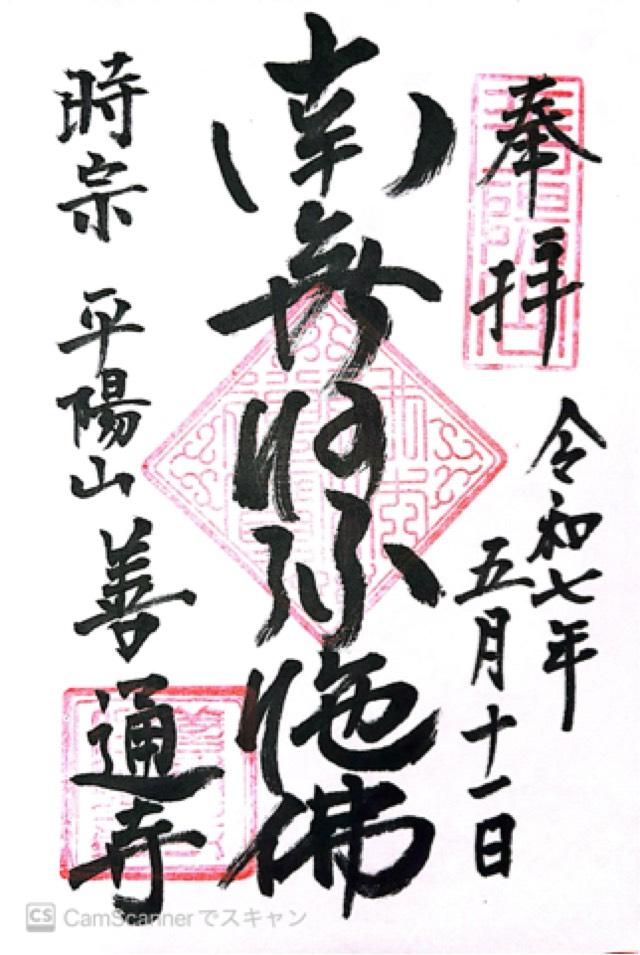 奉拝
令和七年
五月十一日
南無阿弥陁佛
時宗 平陽山 善通寺
CS CamScannerでスキャン